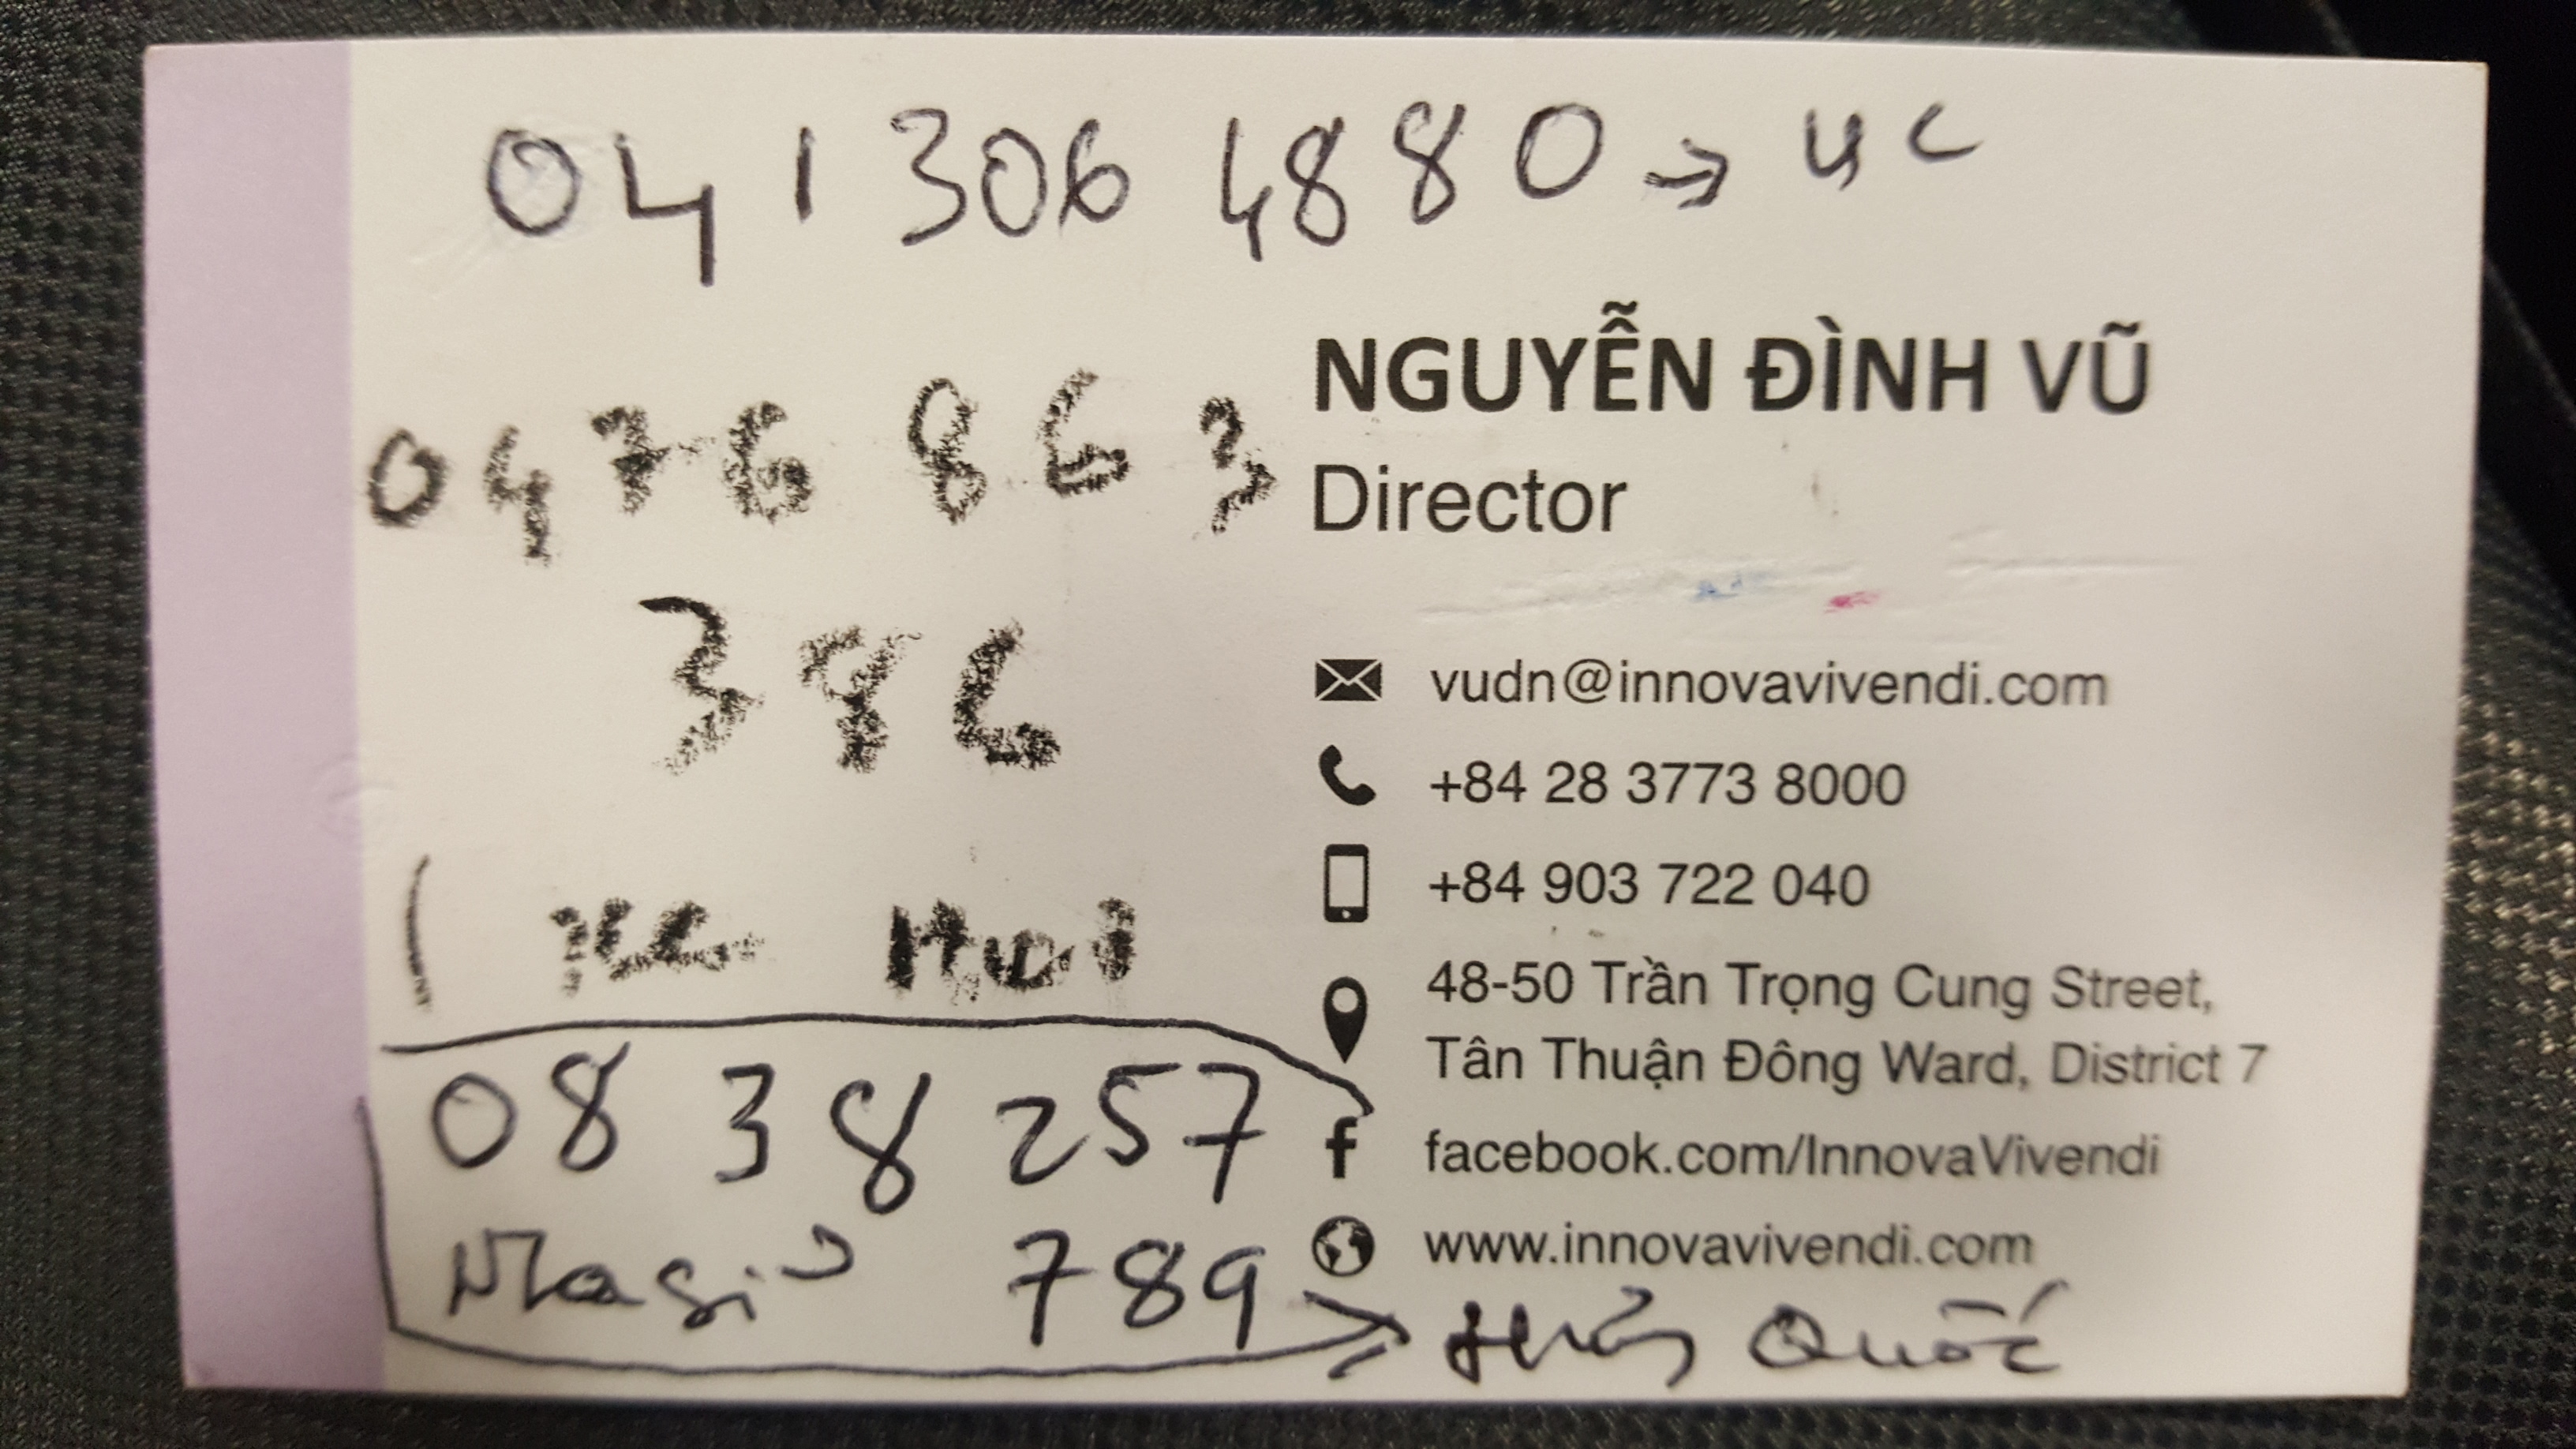 041 306 4880 → UC
NGUYỄN ĐÌNH VŨ
Director
0476 863
386
vudn@innovavivendi.com
+84 28 3773 8000
+84 903 722 040
48-50 Trần Trọng Cung Street,
Tân Thuận Đông Ward, District 7
0838257
facebook.com/InnovaVivendi
789
www.innovavivendi.com
Quốc